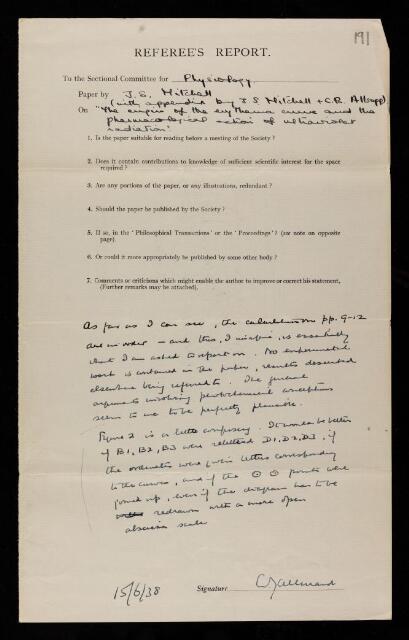 191
REFEREE'S REPORT.
To the Sectional Committee for Physiology.
Paper by J. S. Mitchell
(with appendix by J S Mitchell + C.B. Allsopp)
On "The origin of the erythema curve and the
pharmacological action of ultraviolet
radiation"
1. Is the paper suitable for reading before a meeting of the Society?
2. Does it contain contributions to knowledge of sufficient scientific interest for the space
required?
3. Are any portions of the paper, or any illustrations, redundant?
4. Should the paper be published by the Society?
5. If so, in the 'Philosophical Transactions' or the 'Proceedings'? (see note on opposite
page).
6. Or could it more appropriately be published by some other body?
7. Comments or criticisms which might enable the author to improve or correct his statement,
(Further remarks may be attached).
As far as I can see, the calculations on pp. 9-12
are in order – and this, I imagine, is essentially
what I am asked to report on. No experimental
work is contained in the paper, results described
elsewhere being referred to. The general
arguments involving photochemical conceptions
seem to me to be perfectly plausible.
Figure 2 is a little confusing. It would be better
if B1, B2, B3 were relettered D1, D2, D3, if
the ordinates were given letters corresponding
to the curves, and if the ⊙ ⊙ points were
joined up, even if the diagram has to be
redrawn with a more open
abscissa scale
15/6/38
Signature